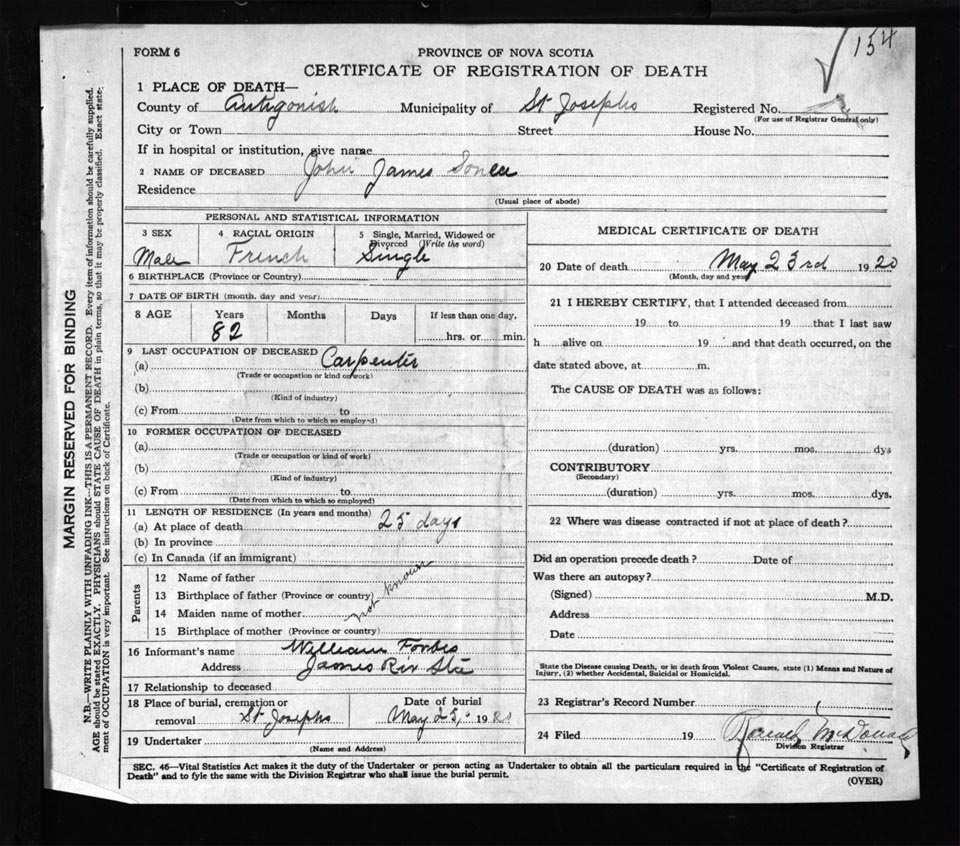 154
FORM 6
PROVINCE OF NOVA SCOTIA
CERTIFICATE OF REGISTRATION OF DEATH
1 PLACE OF DEATH—
County of Antigonish Municipality of St Josephs Registered No.
(For use of Registrar General only)
City or Town Street House No.
If in hospital or institution, give name
2 NAME OF DECEASED John James
Residence
(Usual place of abode)
PERSONAL AND STATISTICAL INFORMATION
3 SEX 4 RACIAL ORIGIN 5 Single, Married, Widowed or Divorced (Write the word)
Male French Single
6 BIRTHPLACE (Province or Country)
7 DATE OF BIRTH (month, day and year)
8 AGE Years Months Days If less than one day,
82 hrs. or min.
9 LAST OCCUPATION OF DECEASED
(a) Carpenter
(Trade or occupation or kind of work)
(b)
(Kind of industry)
(c) From to
(Date from which to which so employed)
10 FORMER OCCUPATION OF DECEASED
(a)
(Trade or occupation or kind of work)
(b)
(Kind of industry)
(c) From to
(Date from which to which so employed)
11 LENGTH OF RESIDENCE (In years and months)
(a) At place of death 25 days
(b) In province
(c) In Canada (if an immigrant)
Parents
12 Name of father
13 Birthplace of father (Province or country)
14 Maiden name of mother
15 Birthplace of mother (Province or country)
not known
16 Informant's name William Forbes
Address James Riv Sta
17 Relationship to deceased
18 Place of burial, cremation or removal St Josephs
Date of burial
May 25, 1920
19 Undertaker
(Name and Address)
MEDICAL CERTIFICATE OF DEATH
20 Date of death May 23rd 1920
(Month, day and year)
21 I HEREBY CERTIFY, that I attended deceased from
19 to 19 that I last saw
h alive on 19 and that death occurred, on the
date stated above, at m.
The CAUSE OF DEATH was as follows:
(duration) yrs. mos. dys
CONTRIBUTORY
(Secondary)
(duration) yrs. mos. dys.
22 Where was disease contracted if not at place of death?
Did an operation precede death? Date of
Was there an autopsy?
(Signed) M.D.
Address
Date
State the Disease causing Death, or in death from Violent Causes, state (1) Means and Nature of
Injury, (2) whether Accidental, Suicidal or Homicidal.
23 Registrar's Record Number
24 Filed 19 Ronald McDonald
Division Registrar
SEC. 46—Vital Statistics Act makes it the duty of the Undertaker or person acting as Undertaker to obtain all the particulars required in the "Certificate of Registration of
Death" and to fyle the same with the Division Registrar who shall issue the burial permit.
(OVER)
MARGIN RESERVED FOR BINDING
N.B.—WRITE PLAINLY WITH UNFADING INK—THIS IS A PERMANENT RECORD. Every item of information should be carefully supplied.
AGE should be stated EXACTLY. PHYSICIANS should STATE CAUSE OF DEATH in plain terms, so that it may be properly classified. Exact state-
ment of OCCUPATION is very important. See instructions on back of Certificate.